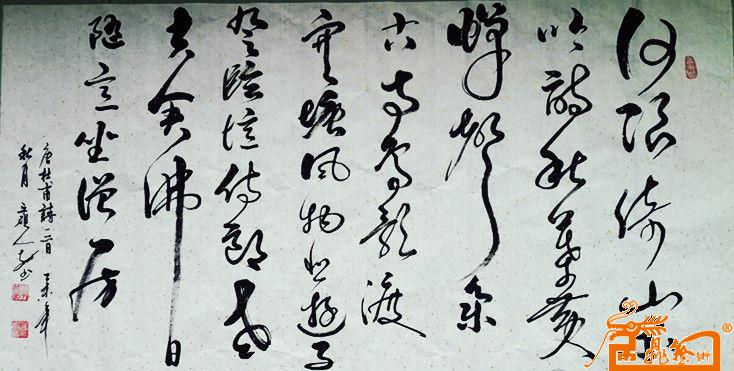 何限倚山木
吟詩秋葉黃
蟬聲集
古寺鳥影渡
寒塘風物悲遊子
登臨憶侍郎老
夫貪佛日
隨意坐僧房
唐杜甫詩一首 年
秋月 人書